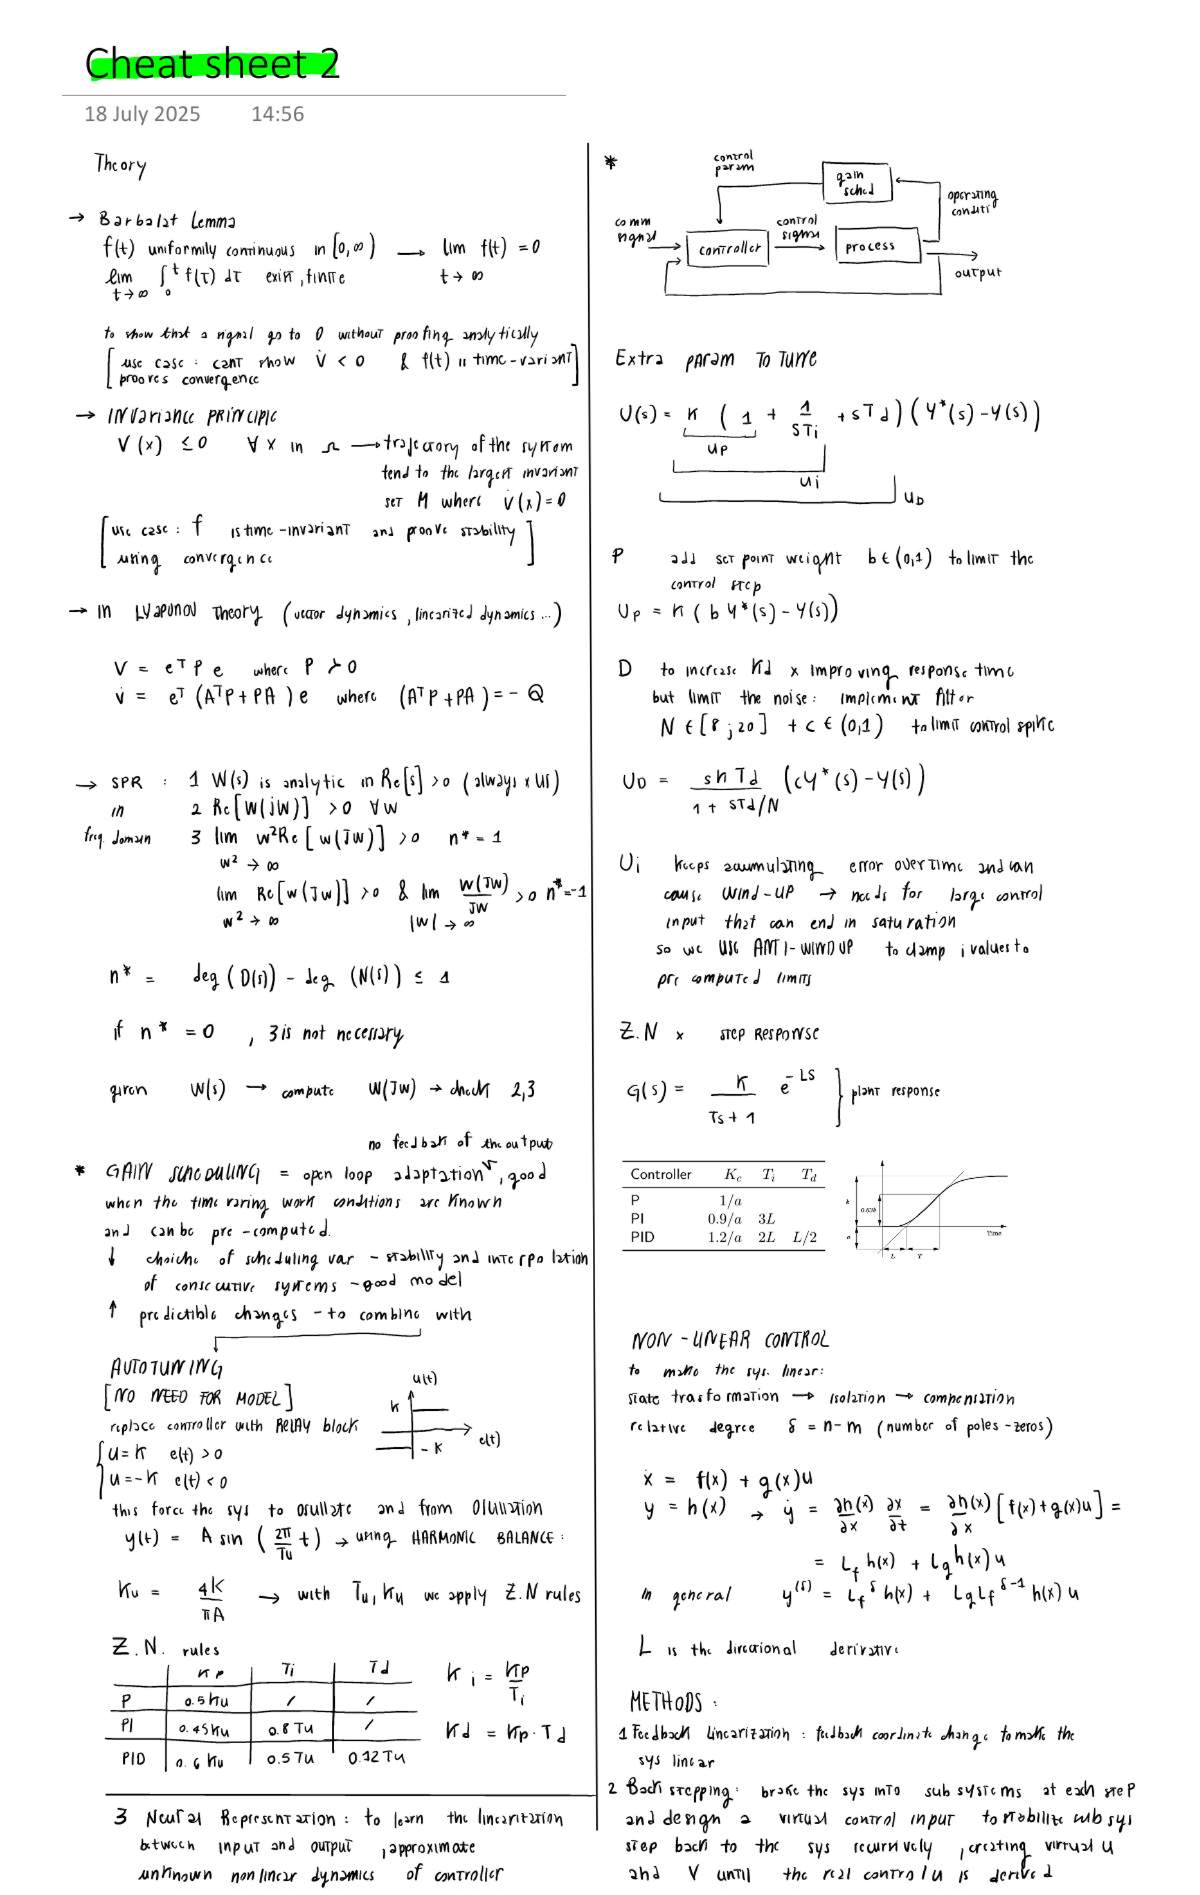 Cheat sheet 2
18 July 2025 14:56
Theory
→ Barbalat Lemma
f(t) uniformily continuous in [0,∞) → lim f(t) = 0
lim ∫ t f(τ) dτ exist, finite t → ∞
t→∞ 0
to show that a signal go to 0 without proofing analytically
[use case : cant show V̇ < 0 & f(t) is time-variant]
prooves convergence
→ INVARIANCE PRINCIPLE
V̇(x) ≤ 0 ∀ x in Ω → trajectory of the system
tend to the largest invariant
set M where V̇(x) = 0
[use case : f is time-invariant and proove stability
using convergence]
→ In LYAPUNOV THEORY (vector dynamics, linearized dynamics ...)
V = eᵀ P e where P ≻ 0
V̇ = eᵀ (AᵀP + PA) e where (AᵀP + PA) = - Q
→ SPR : 1 W(s) is analytic in Re[s] > 0 (always x us)
in 2 Re[W(jw)] > 0 ∀w
freq. domain 3 lim w²Re[W(Jw)] > 0 n* = 1
w² → ∞
lim Re[W(Jw)] > 0 & lim W(JW)/JW > 0 n* = -1
w² → ∞ |W| → ∞
n* = deg (D(s)) - deg (N(s)) ≤ 1
if n* = 0 , 3 is not necessary
given W(s) → compute W(JW) → check 2,3
no feedback of the output
* GAIN SCHEDULING = open loop adaptation, good
when the time varing work conditions are known
and can be pre-computed.
↓ choiche of scheduling var - stability and interpolation
of consecutive systems - good model
↑ predictible changes - to combine with
AUTOTUNING
[NO NEED FOR MODEL]
replace controller with RELAY block
{u = K e(t) > 0
u = -K e(t) < 0
u(t)
K
e(t)
- K
this force the sys to oscillate and from oscillation
y(t) = A sin (2π/Tu t) → using HARMONIC BALANCE :
Ku = 4K/πA → with Tu, Ku we apply Z.N rules
Z.N. rules
Kp Ti Td
P 0.5 Ku / /
PI 0.45 Ku 0.8 Tu /
PID 0.6 Ku 0.5 Tu 0.12 Tu
Ki = Kp/Ti
Kd = Kp · Td
3 Neural Representation : to learn the linearization
between input and output , approximate
unknown nonlinear dynamics of controller
*
control
param
gain
sched
operating
conditi
comm
signal
controller
control
signal
process
output
Extra param to tune
U(s) = K ( 1 + 1/STi + sTd ) (Y*(s) - Y(s))
Up
Ui
UD
P add set point weight b ∈ (0,1) to limit the
control step
Up = K ( b Y*(s) - Y(s))
D to increase Kd x improving response time
but limit the noise: implement filter
N ∈ [8 ; 20] + c ∈ (0,1) to limit control spike
UD = sKTd/1 + STd/N (cY*(s) - Y(s))
Ui keeps accumulating error over time and can
cause WIND-UP → needs for large control
input that can end in saturation
so we USE ANTI-WINDUP to clamp i values to
pre computed limits
Z.N x STEP RESPONSE
G(s) = K/Ts + 1 e^-LS } plant response
Controller Kc Ti Td
P 1/a
PI 0.9/a 3L
PID 1.2/a 2L L/2
k
0.63k
a
L T
Time
NON-LINEAR CONTROL
to make the sys. linear:
state trasformation → isolation → compensation
relative degree δ = n - m (number of poles - zeros)
ẋ = f(x) + g(x)u
y = h(x) → ẏ = ∂h(x)/∂x ∂x/∂t = ∂h(x)/∂x [f(x) + g(x)u] =
= Lf h(x) + Lg h(x) u
in general y^(δ) = Lf^δ h(x) + Lg Lf^δ-1 h(x) u
L is the directional derivative
METHODS :
1 Feedback linearization : feedback coordinate change to make the
sys linear
2 Back stepping: brake the sys into sub systems at each step
and design a virtual control input to stabilize sub sys
step back to the sys recursively , creating virtual u
and V until the real control u is derived